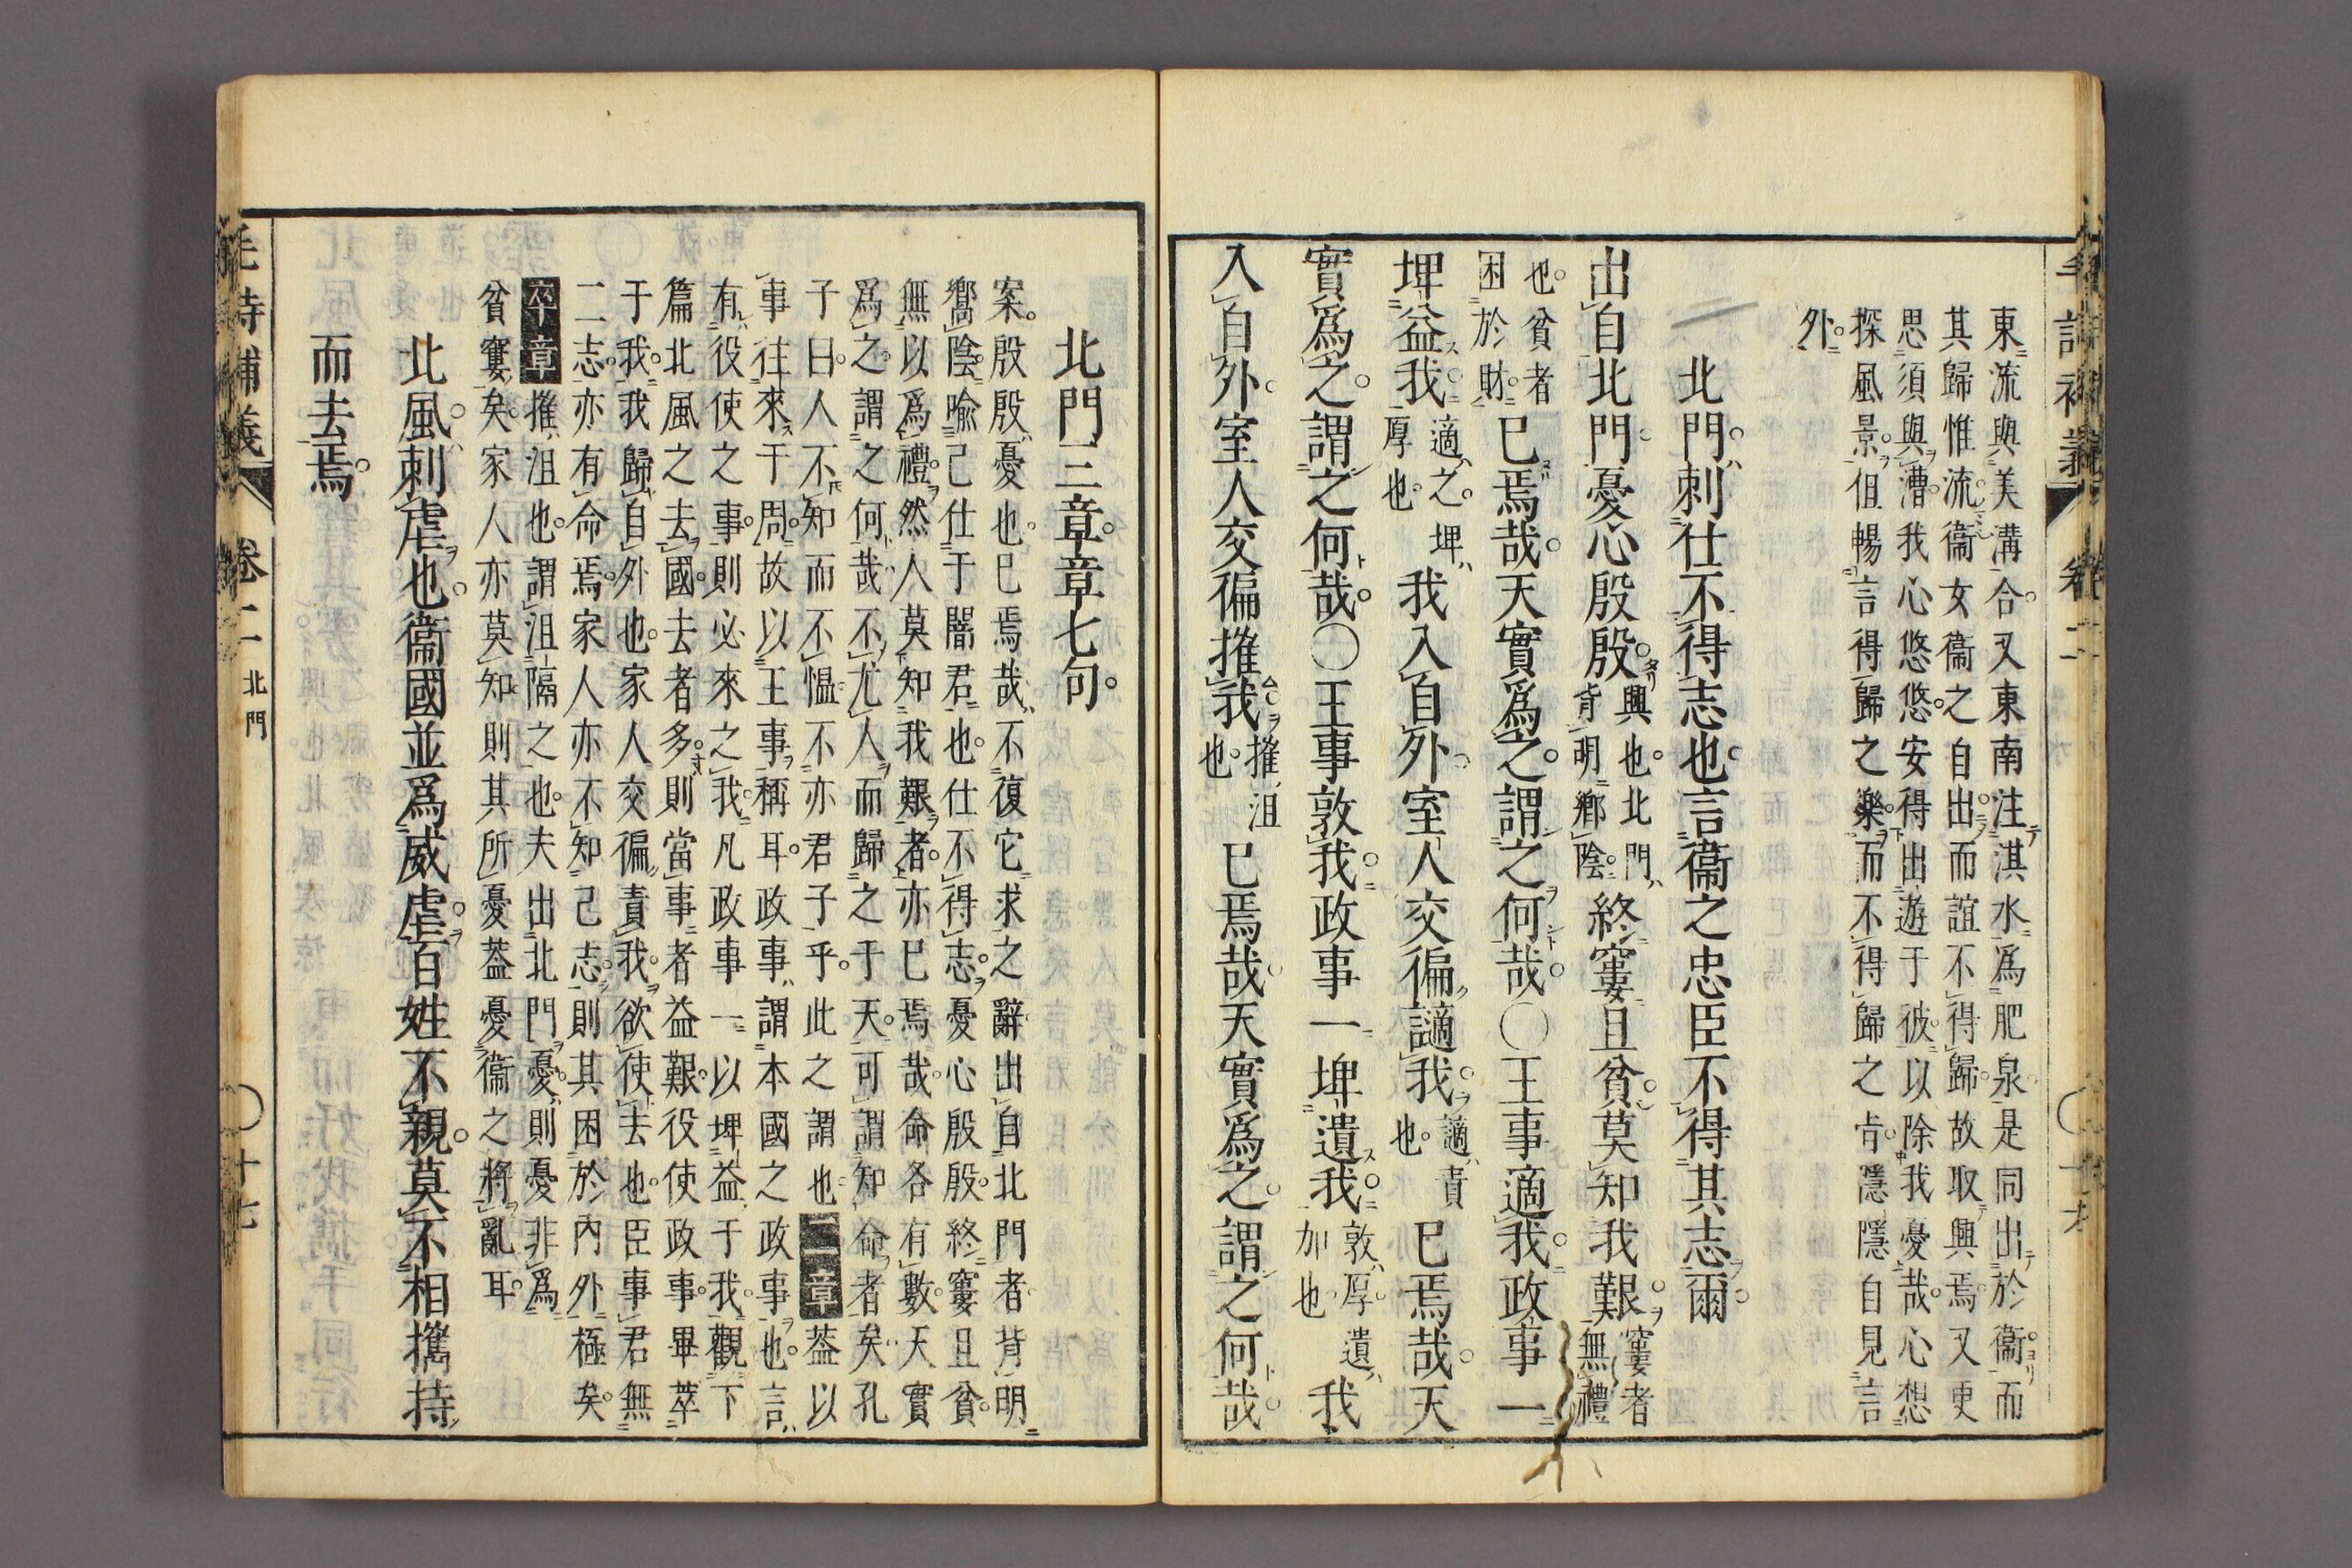 東流與美溝合又東南注淇水爲肥泉是同出於衞而
其歸惟流衞女衞之自出而誼不得歸故取興焉又更
思須與漕我心悠悠安得出遊于彼以除我憂哉心想
探風景但暢言得歸之樂而不得歸之肯隱隱自見言
外
北門刺仕不得志也言衞之忠臣不得其志爾
出自北門憂心殷殷興也北門背明鄉陰終窶且貧莫知我艱窶者無禮
也貧者困於財已焉哉天實爲之謂之何哉○王事適我政事一
埤益我適之埤厚也我入自外室人交徧讁我讁責也已焉哉天
實爲之謂之何哉○王事敦我政事一埤遺我敦厚遺加也我
入自外室人交徧摧我摧沮也已焉哉天實爲之謂之何哉
北門三章章七句
案殷殷憂也已焉哉不復它求之辭出自北門者背明
嚮陰喩己仕于闇君也仕不得志憂心殷殷終窶且貧
無以爲禮然人莫知我艱者亦已焉哉命各有數天實
爲之謂之何哉不尤人而歸之于天可謂知命者矣孔
子曰人不知而不慍不亦君子乎此之謂也二章葢以
事往來于周故以王事稱耳政事謂本國之政事也言
有役使之事則必來之我凡政事一以埤益于我觀下
篇北風之去國去者多則當事者益艱役使政事畢萃
于我我歸自外也家人交徧責我欲使去也臣事君無
二志亦有命焉家人亦不知己志則其困於內外極矣
卒章摧沮也謂沮隔之也夫出北門憂則憂非爲
貧窶矣家人亦莫知則其所憂葢憂衞之將亂耳
北風刺虐也衞國並爲威虐百姓不親莫不相擕持
而去焉
毛詩補義 卷二 北門 十七